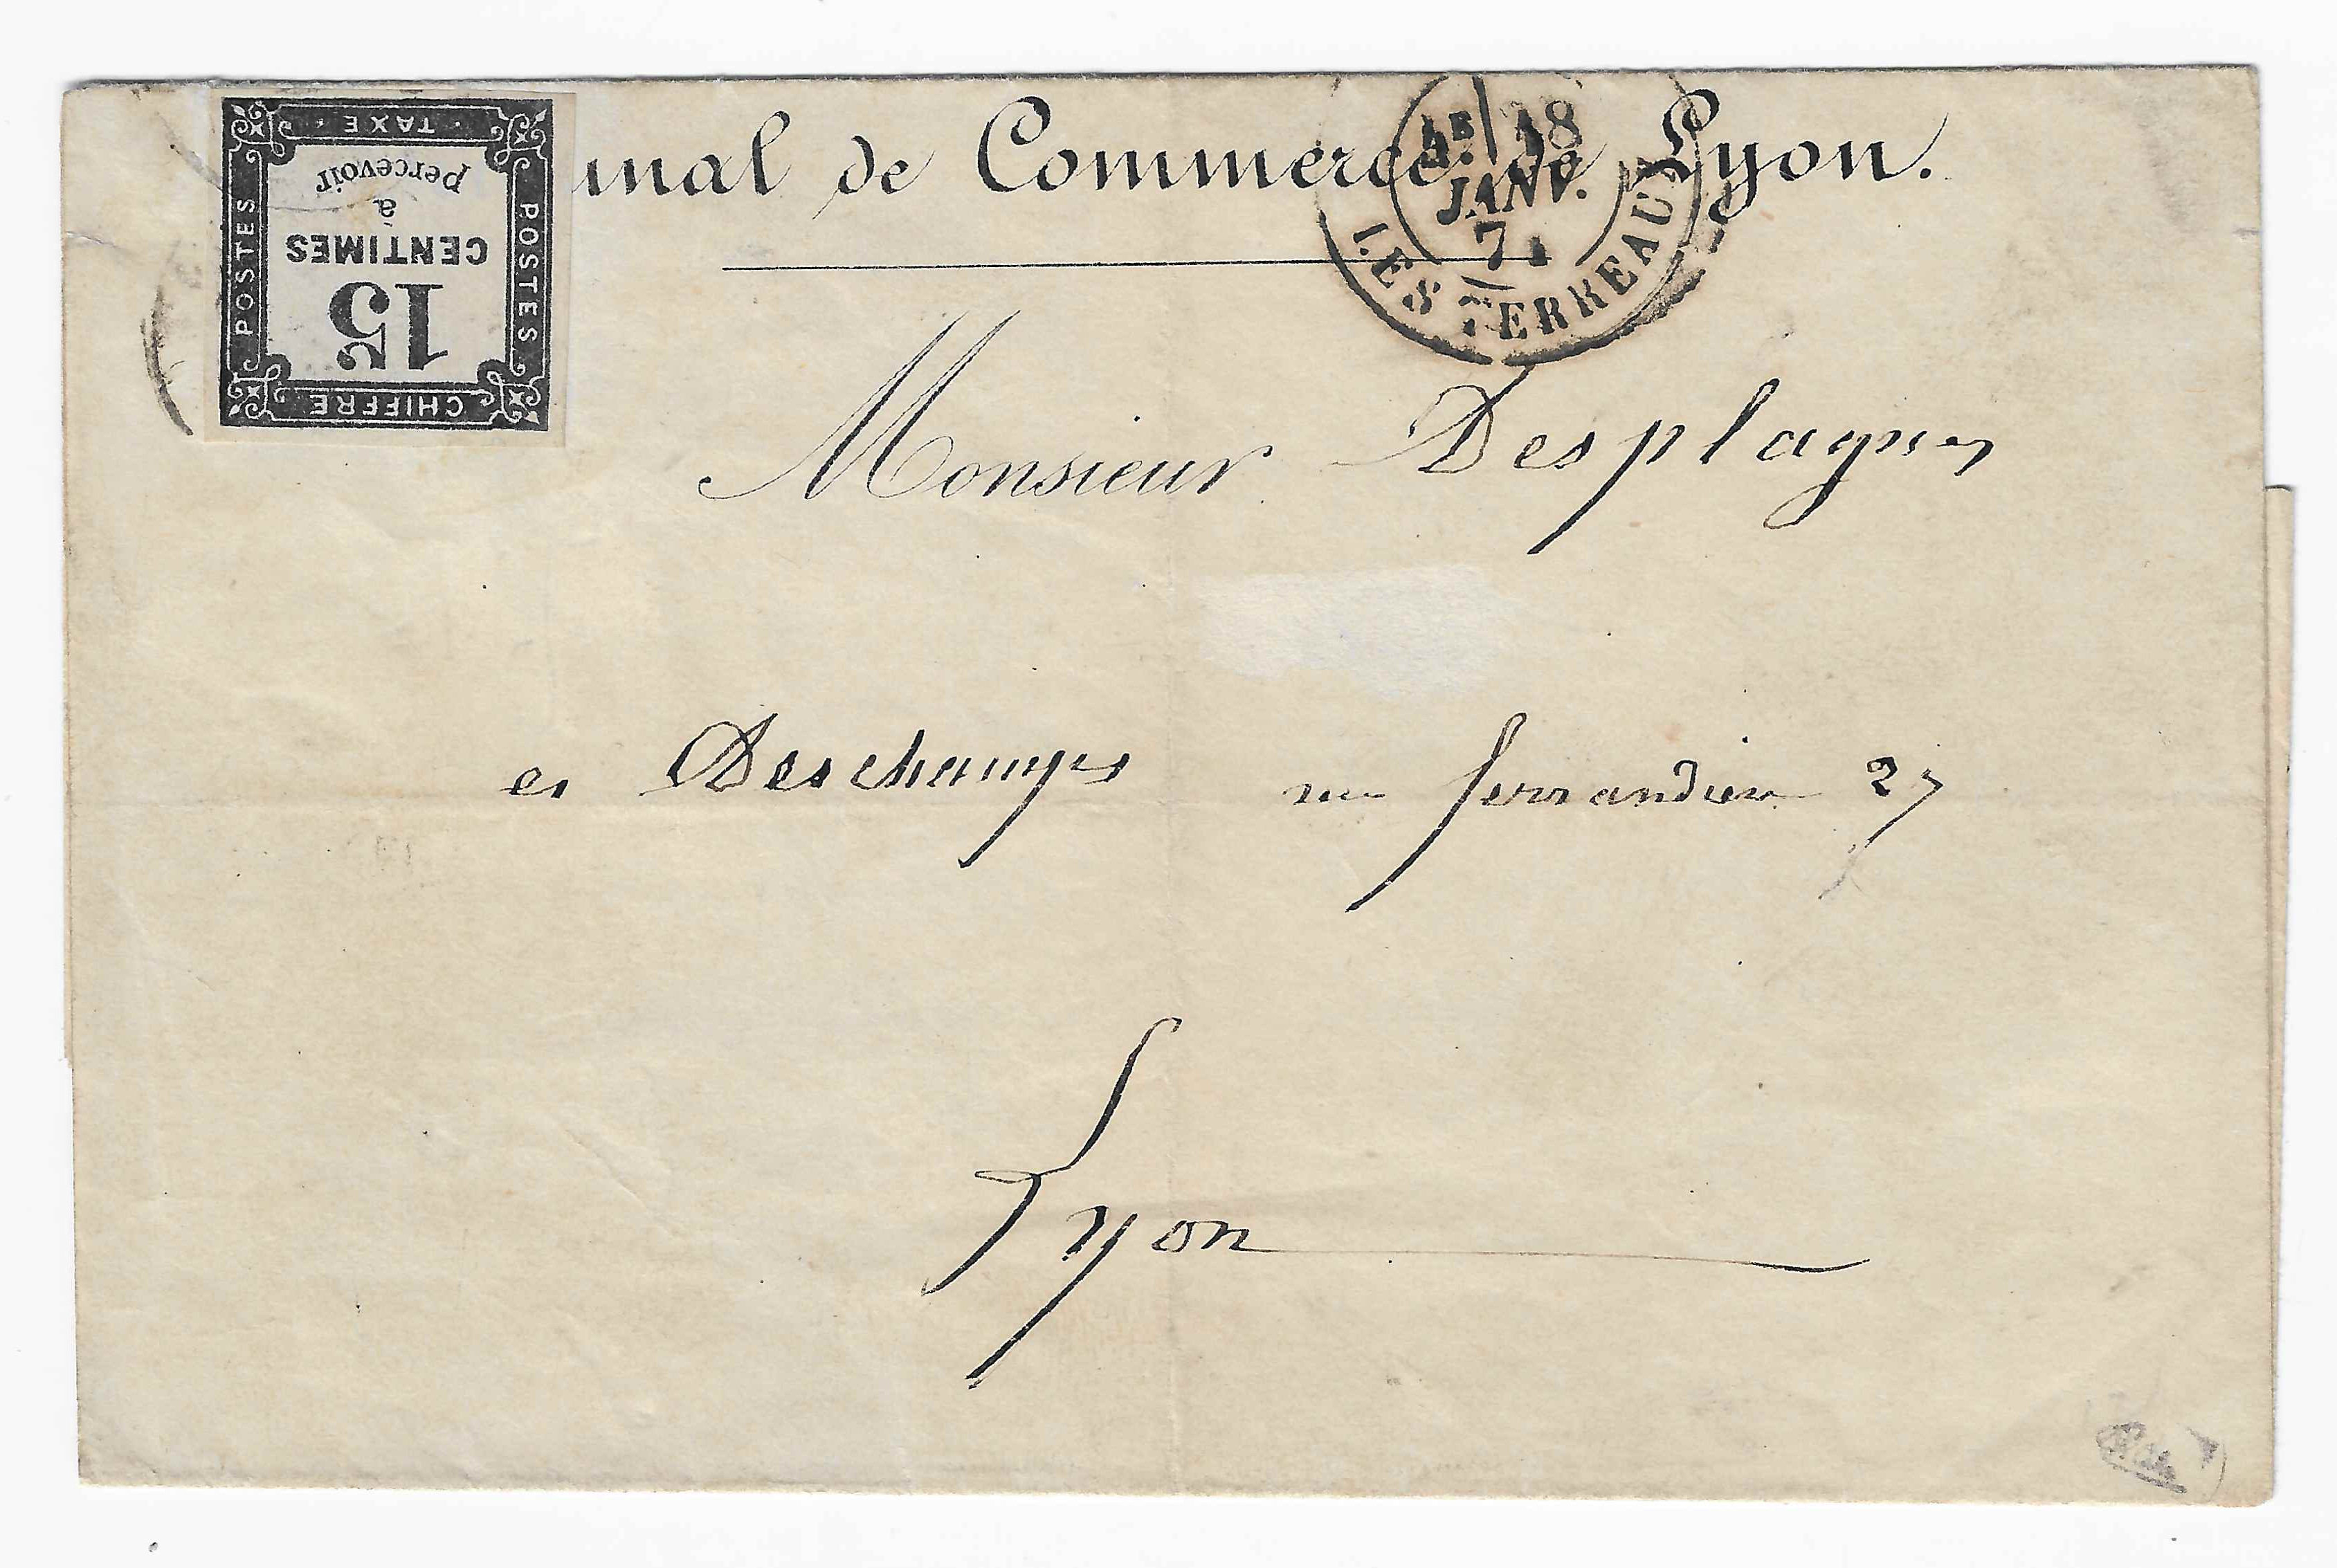 CHIFFRE
15
CENTIMES
à
percevoir
TAXE
POSTES
POSTES
unal de Commerce de Lyon.
18
JANV.
71
LES TERREAUX
Monsieur Desplagnes
et Deschamps rue ferrandière 27
Lyon